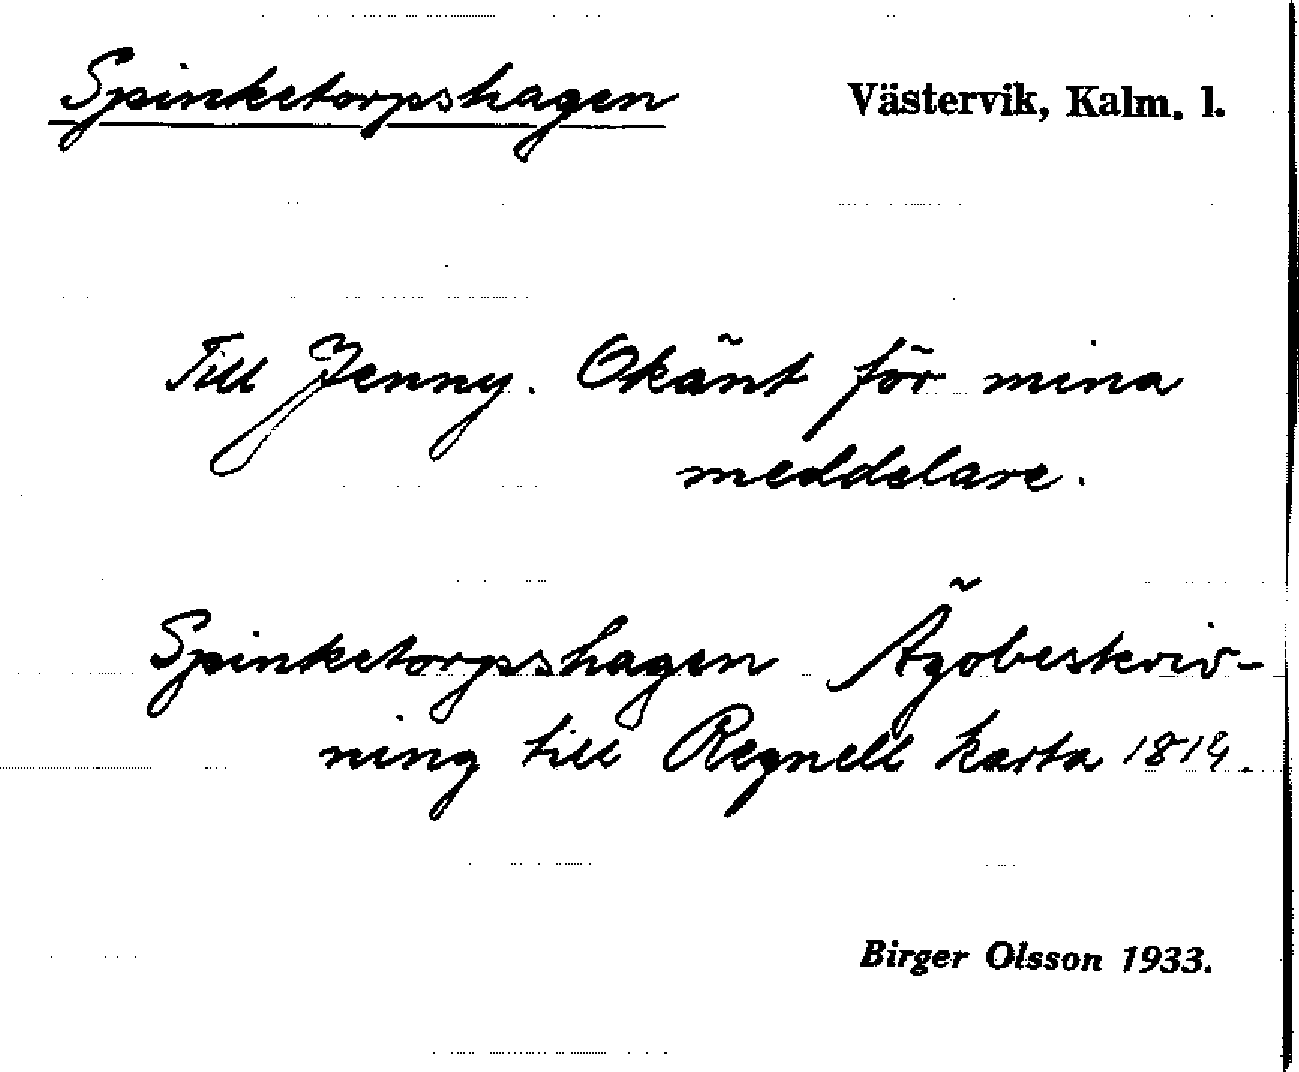 Spinketorpshagen Västervik, Kalm. l.
Till Jenny. Okänt för mina
meddelare.
Spinketorpshagen Ägobeskriv-
ning till Regnell karta 1819.
Birger Olsson 1933.